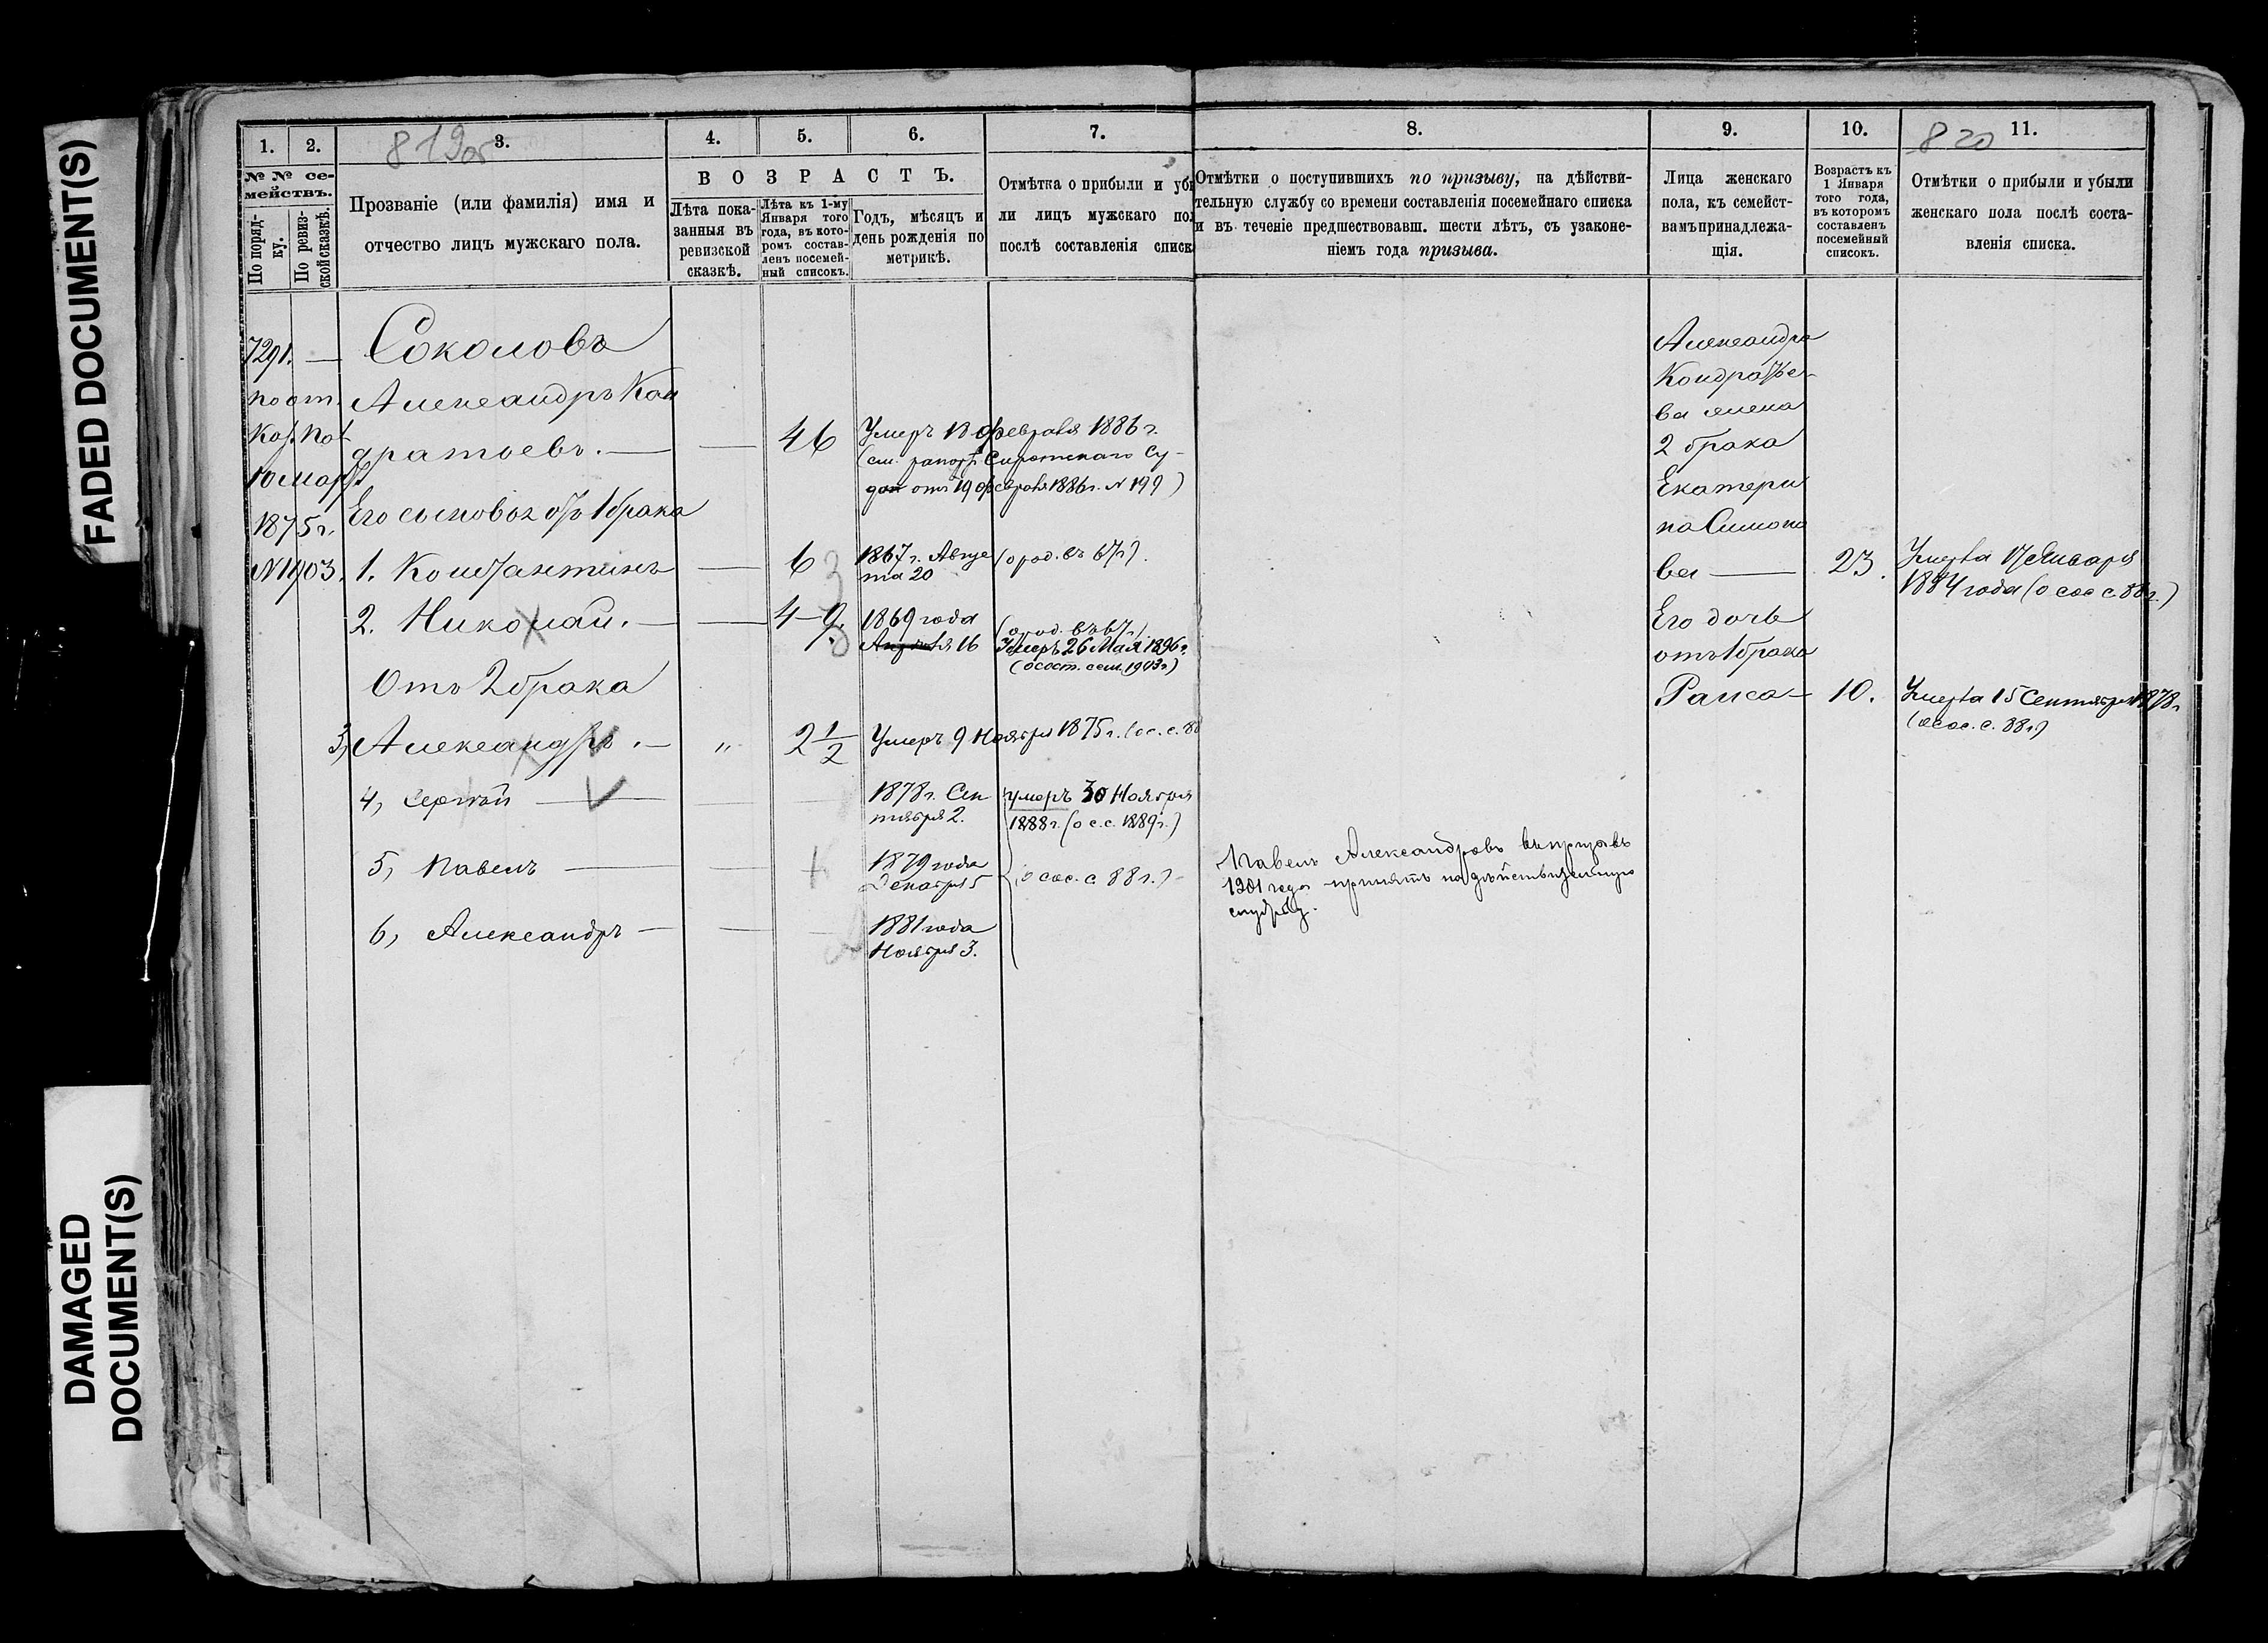 FADED DOCUMENT(S)
DAMAGED
DOCUMENT(S)
1. 2. 3. 4. 5. 6. 7.
819 об
№ № се-
мействъ.
По поряд-
ку.
По ревиз-
ской сказкѣ.
Прозваніе (или фамилія) имя и
отчество лицъ мужскаго пола.
ВОЗРАСТЪ.
Лѣта пока-
занныя въ
ревизской
сказкѣ.
Лѣта къ 1-му
Января того
года, въ кото-
ромъ состав-
ленъ посемей-
ный списокъ.
Годъ, мѣсяцъ и
день рожденія по
метрикѣ.
Отмѣтка о прибыли и убы
ли лицъ мужскаго пол
послѣ составленія списк
7291. —
по от.
1875 г.
N 1903.
Соколовъ
Александръ Кон
дратьевъ. — — 46
Умеръ 18 февраля 1886 г.
(см. рапорт Сиротскаго Су-
да отъ 19 февраля 1886 г. N 199)
Его сыновья отъ 1 брака
1. Константинъ — 6
1867 г. Авгус
та 20
(о род. въ 67 г.).
2. Николай. — — 4-9.
1869 года
Апреля 16
(о род. въ 67 г.)
Умеръ 26 Мая 1896 г.
(о сост. сем. 1903 г.)
Отъ 2 брака
3, Александръ. — „ 2 1/2
Умеръ 9 Ноября 1875 г. (о с. с. 88
4, Сергѣй —
1878 г. Сен
тября 2.
умеръ 30 Ноября
1888 г. (о с. с. 1889 г.)
5, Павелъ — —
1879 года
Декабря 5
(о сос. с. 88 г.)
6, Александръ — — —
1881 года
Ноября 3.
8. 9. 10. 11.
820
Отмѣтки о поступившихъ по призыву, на дѣйстви-
тельную службу со времени составленія посемейнаго списка
и въ теченіе предшествовавш. шести лѣтъ, съ узаконе-
ніемъ года призыва.
Лица женскаго
пола, къ семейст-
вамъ принадлежа-
щія.
Возрастъ къ
1 Января
того года,
въ которомъ
составленъ
посемейный
списокъ.
Отмѣтки о прибыли и убыли
женскаго пола послѣ соста-
вленія списка.
Павелъ Александровъ въ призывъ
1901 года принятъ на дѣйствительную
службу.
Александра
Кондратье-
ва жена
2 брака
Екатери
на Симоно
ва — 23.
Умерла 17 Января
1884 года (о сос с. 88 г.)
Его дочь
отъ 1 брака
Раиса — 10.
Умерла 15 Сентября 1878 г.
(о сос. с. 88 г.)